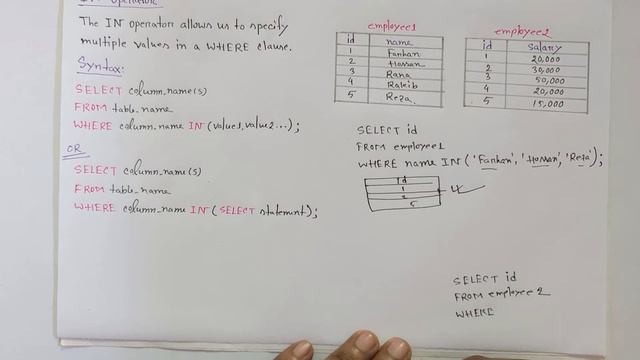 IN operator
The IN operator allows us to specify
multiple values in a WHERE clause.
Syntax:
SELECT column_name(s)
FROM table_name
WHERE column_name IN (value1, value2...);
OR
SELECT column_name(s)
FROM table_name
WHERE column_name IN (SELECT statement);
employee1
id name
1 Farhan
2 Hassan
3 Rana
4 Rakib
5 Reza
employee2
id salary
1 20,000
2 30,000
3 50,000
4 20,000
5 15,000
SELECT id
FROM employee1
WHERE name IN ('Farhan', 'Hassan', 'Reza');
id
1
2
5
SELECT id
FROM employee2
WHERE